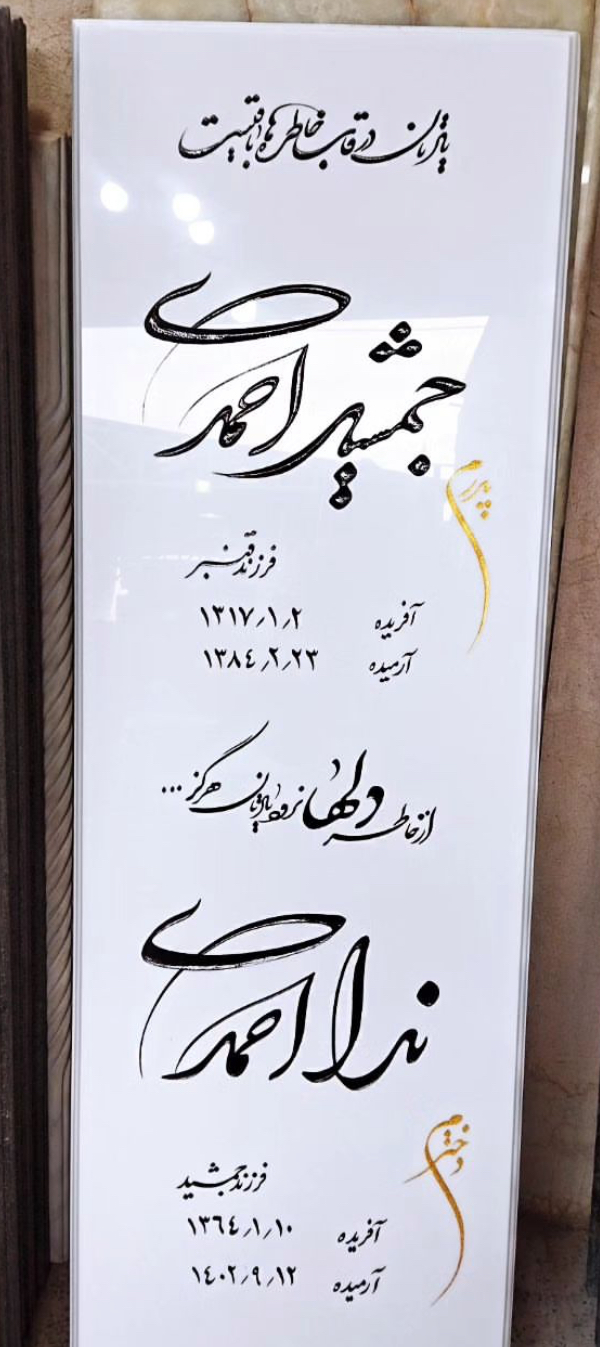 یادتان در قاب خاطره‌ها باقیست
جمشید احمدی
پدرم
فرزند قنبر
آفریده ۱۳۱۷/۱/۲
آرمیده ۱۳۸۴/۲/۲۳
از خاطر دلها نرود یادتان هرگز ...
ندا احمدی
دخترم
فرزند جمشید
آفریده ۱۳۶۴/۱/۱۰
آرمیده ۱۴۰۲/۹/۱۲